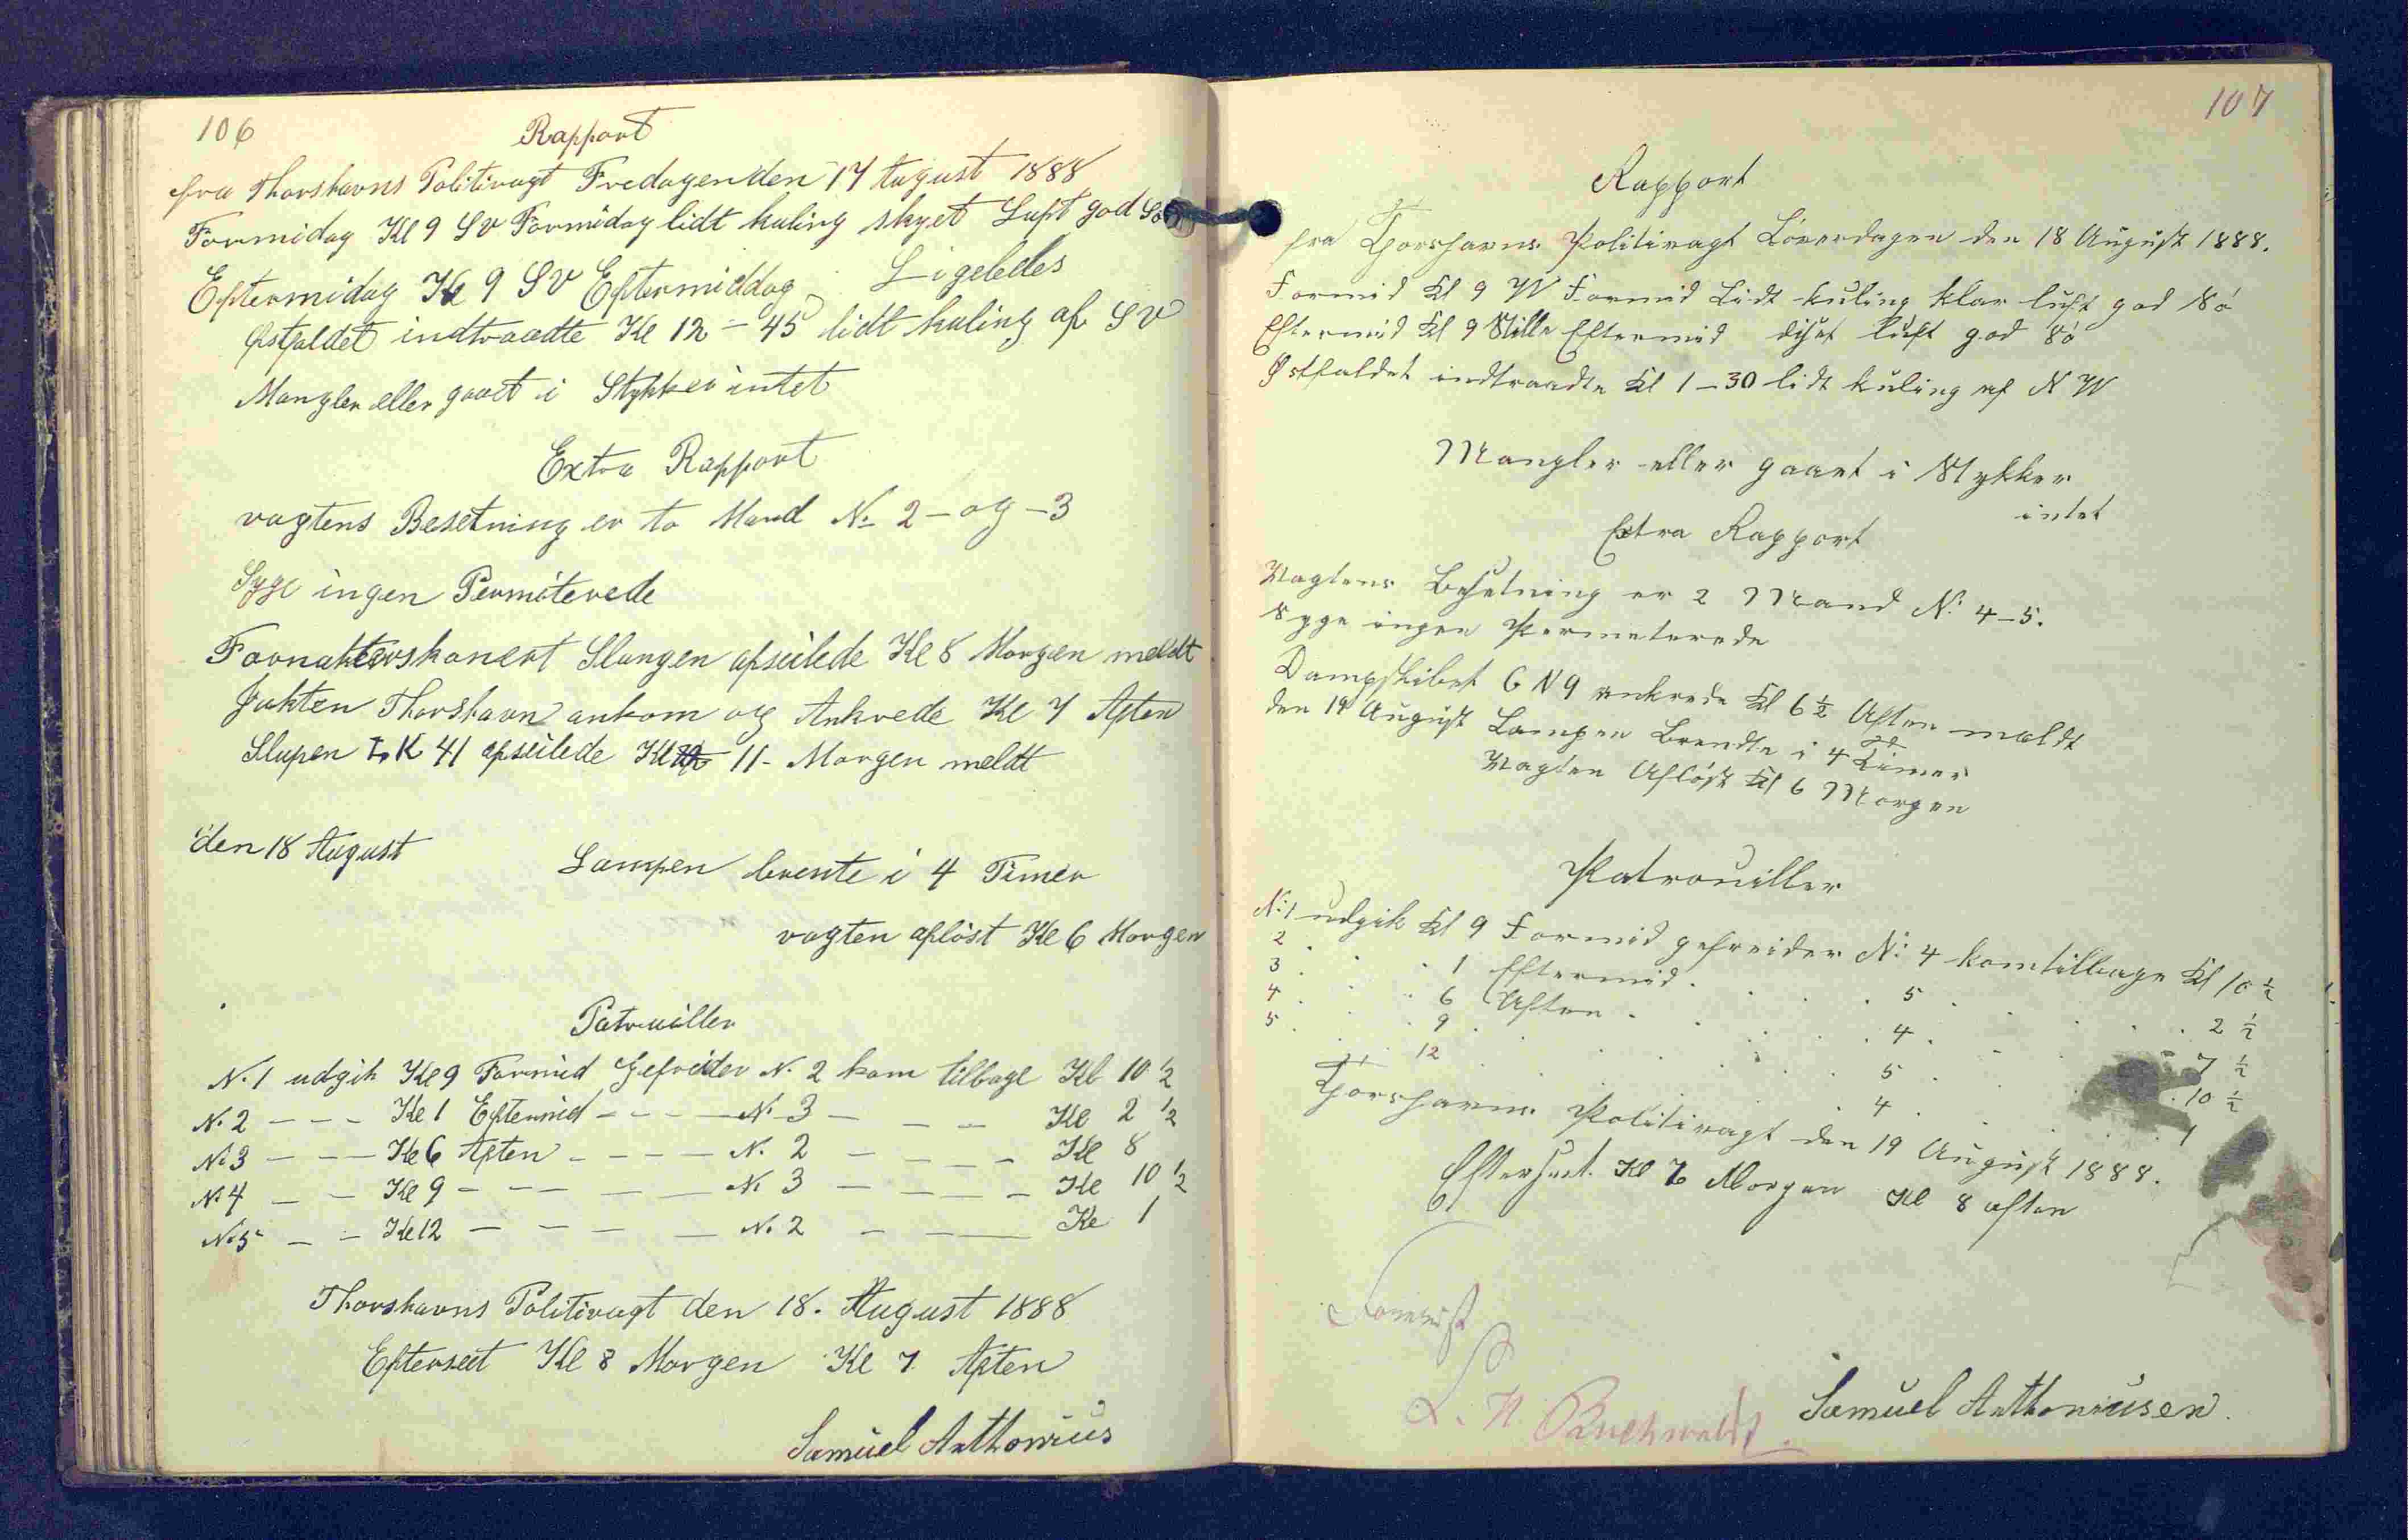 106
Rapport
fra Thorshavns Politivagt Fredagen den 17 August 1888
Formidag Kl 9 SV Formidag lidt kuling skyet Luft god Sö
Eftermidag Kl 9 SV Eftermiddag Ligeledes
Østfaldet indtraadte Kl 12 - 45 lidt kuling af SV
Mangler eller gaaet i Stykker intet
Extra Rapport
vagtens Besetning er to Mand N. 2 - og - 3
Syge ingen Permiterede
Slangen afseilede Kl 8 Morgen meldt
Jakten Thorshavn ankom og Ankrede Kl 7 Aften
Slupen LK 41 afseilede Kl 11 - Morgen meldt
den 18 August
Lampen brente i 4 Timer
vagten aflöst Kl 6 Morgen
Patrouiller
N. 1 udgik Kl 9 Formid Gefreider N. 2 kom tilbage Kl 10 ½
N. 2 - - - Kl 1 Eftermid - - - - N. 3 - - - Kl 2 ½
N. 3 - - - Kl 6 Aften - - - - N. 2 - - - - Kl 8
N. 4 - - Kl 9 - - - - - N. 3 - - - - Kl 10 ½
N. 5 - - Kl 12 - - - - - N. 2 - - - Kl 1
Thorshavns Politivagt den 18. August 1888
Efterseet Kl 8 Morgen Kl 7 Aften
Samuel Anthonius
107
Rapport
fra Thorshavns Politivagt Löverdagen den 18 August 1888.
Formid Kl 9 W Formid Lidt kuling klar luft god Sö
Eftermid Kl 9 Stille Eftermid diset luft god Sö
Østfaldet indtraadte Kl 1 - 30 lidt kuling af N W
Mangler eller gaaet i Stykker
intet
Extra Rapport
Vagtens Besetning er 2 Mand N: 4 - 5.
Syge ingen Permeterede
Dampskibet G N 9 ankrede Kl 6 ½ Aften meldt
den 19 August Lampen Brendte i 4 Timer
Vagten Aflöst Kl 6 Morgen
Patrouiller
N: 1 udgik Kl 9 Formid gefreider N: 4 kom tilbage Kl 10 ½
2 . . . 1 Eftermid . . . 5 . . . 2 ½
3 . . . 6 Aften . . . 4 . . . 7 ½
4 . . . 9 . . . 5 . . . 10 ½
5 . . . 12 . . . 4 . . . 1
Thorshavns Politivagt den 19 August 1888.
Efterseet. Kl 7 Morgen Kl 8 aften
Samuel Anthoniusen.